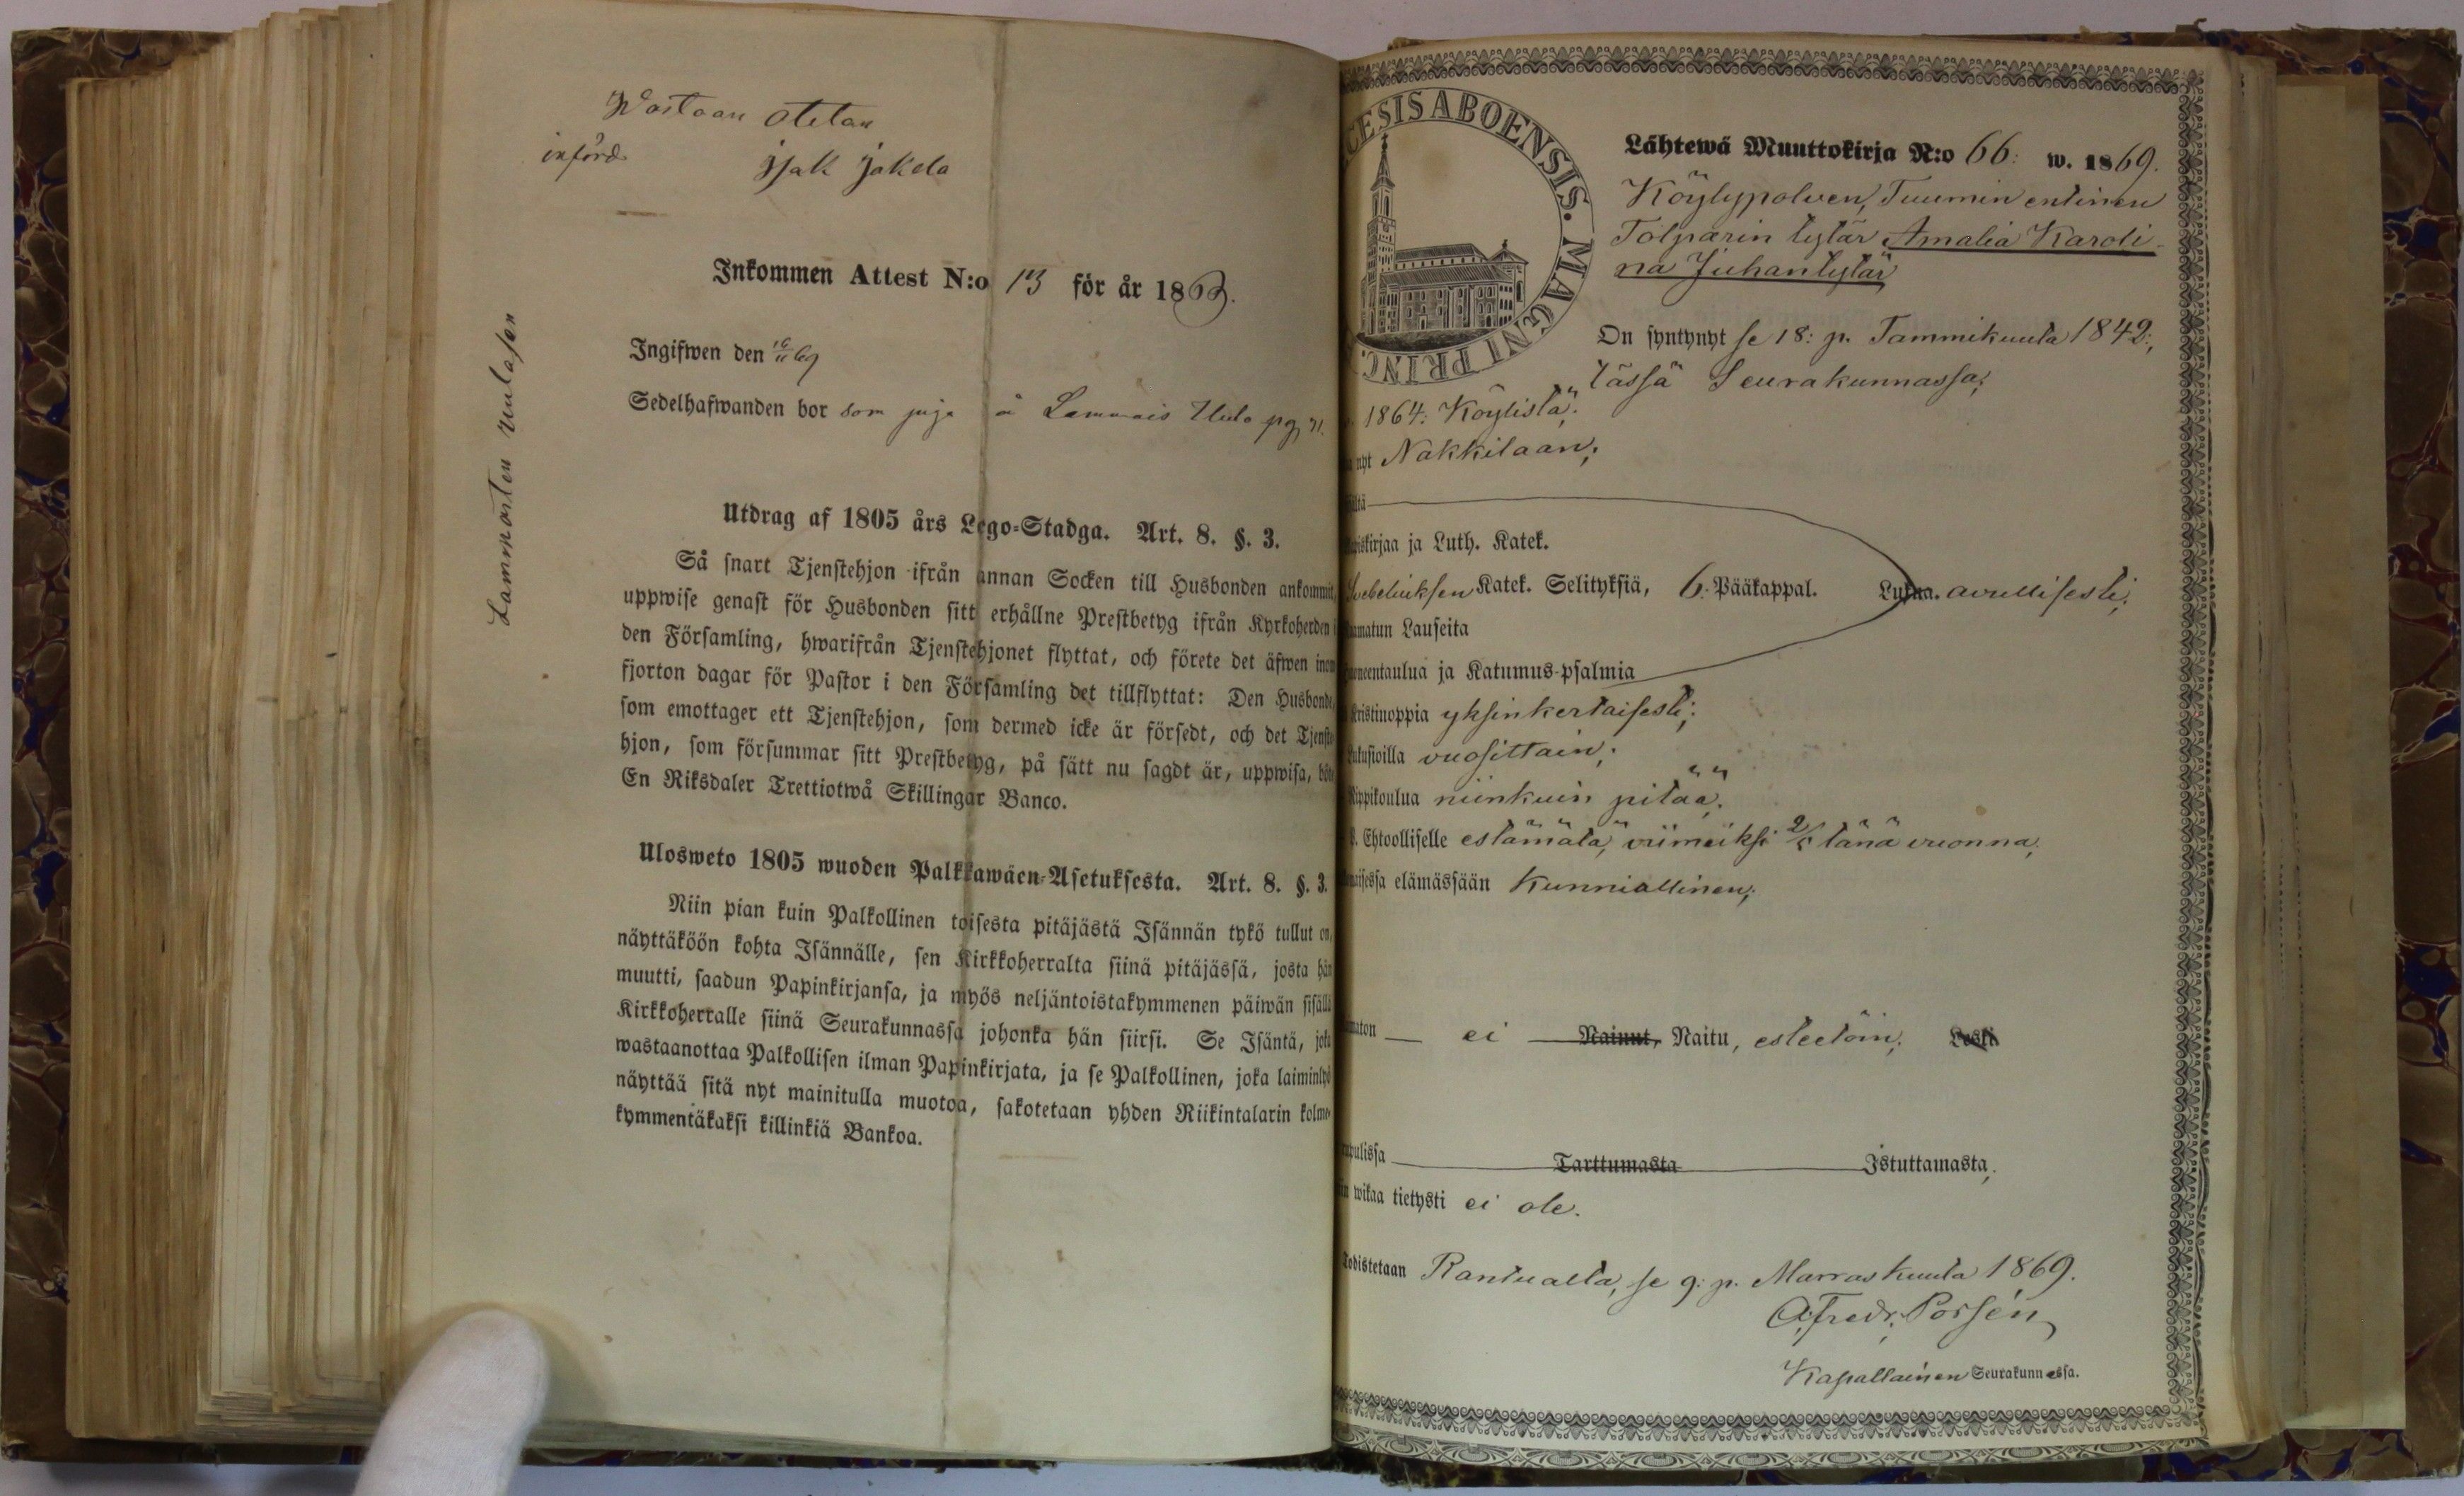 Wastaan otetan
införd
isak jakola
Lammaisten Uulasen
Inkommen Attest N:o 13 för år 1869.
Ingifwen den 16/11 69
Sedelhafwanden bor som piga å Lammais Uula pg 71.
Utdrag af 1805 års Lego-Stadga. Art. 8. §. 3.
Så snart Tjenstehjon ifrån annan Socken till Husbonden ankommit,
uppwise genast för Husbonden sitt erhållne Prestbetyg ifrån Kyrkoherden i
den Församling, hwarifrån Tjenstehjonet flyttat, och förete det äfwen inom
fjorton dagar för Pastor i den Församling det tillflyttat: Den Husbonde,
som emottager ett Tjenstehjon, som dermed icke är försedt, och det Tjenste-
hjon, som försummar sitt Prestbetyg, på sätt nu sagdt är, uppwisa, böte
En Riksdaler Trettiotwå Skillingar Banco.
Ulosweto 1805 wuoden Palkkawäen-Asetuksesta. Art. 8. §. 3.
Niin pian kuin Palkollinen toisesta pitäjästä Isännän tykö tullut on,
näyttäköön kohta Isännälle, sen Kirkkoherralta siinä pitäjässä, josta hän
muutti, saadun Papinkirjansa, ja myös neljäntoistakymmenen päiwän sisällä
Kirkkoherralle siinä Seurakunnassa johonka hän siirsi. Se Isäntä, joka
wastaanottaa Palkollisen ilman Papinkirjata, ja se Palkollinen, joka laiminlyö
näyttää sitä nyt mainitulla muotoa, sakotetaan yhden Riikintalarin kolme-
kymmentäkaksi killinkiä Bankoa.
CESIS ABOENSIS. MAGNI PRINC.
Lähtewä Muuttokirja N:o 66: w. 1869.
Köylypolven, Tuumin entinen
Tolparin tytär Amalia Karoli-
na Juhantytär
On syntynyt se 18: p. Tammikuuta 1842:,
tässä Seurakunnassa;
1864: Köylistä;
nyt Nakkilaan;
ältä
piskirjaa ja Luth. Katek.
Svebeliuksen Katek. Selityksiä, 6: Pääkappal. Lukua. avullisesti;
amatun Lauseita
neentaulua ja Katumus-psalmia
Kristinoppia yksinkertaisesti;
Lukusioilla vuosittain;
Rippikoulua niinkuin pitää;
p. Ehtoolliselle estämätä, viimeiksi 2/5 tänä vuonna;
maisessa elämässään Kunniallinen;
maton — ei — Nainut, Naitu, esteetöin; Leski
upulissa — Tarttumasta — Istuttamasta;
in wikaa tietysti ei ole.
Todistetaan Kantualta, se 9: p. Marraskuuta 1869.
A. Fredr. Porsén
Kapallainen Seurakunnassa.